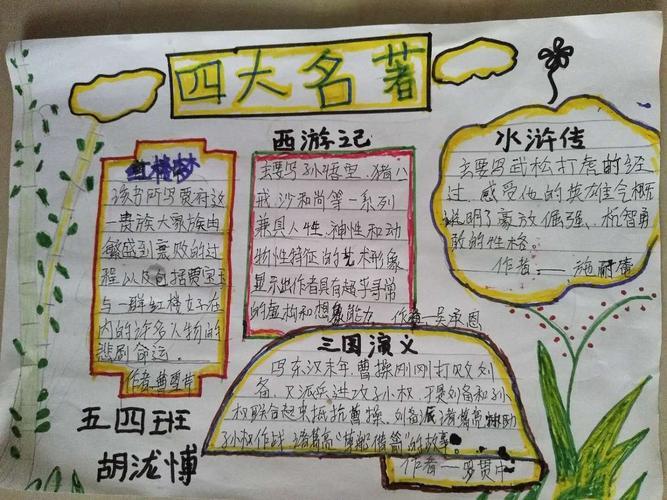 四大名著
红楼梦
该书所写贾府这
一贵族大家族由
繁盛到衰败的过
程以及包括贾宝玉
与一群红楼女子在
内的许多人物的
悲剧命运.
作者曹雪芹
西游记
主要写孙悟空.猪八
戒.沙和尚等一系列
兼具人性.神性和动
物性特征的艺术形象
显示出作者具有超乎寻常
的虚构和想象能力
作者—吴承恩
水浒传
主要写武松打虎的经
过.感受他的英雄气概
说明了豪放倔强、机智勇
敢的性格。
作者—施耐庵
三国演义
写东汉末年曹操刚刚打败刘
备.又派兵进攻孙权.于是刘备和孙
权联合起来抵抗曹操.刘备派诸葛亮
孙权作战 诸葛亮“草船借箭”的故事.
作者—罗贯中
五四班
胡泷博